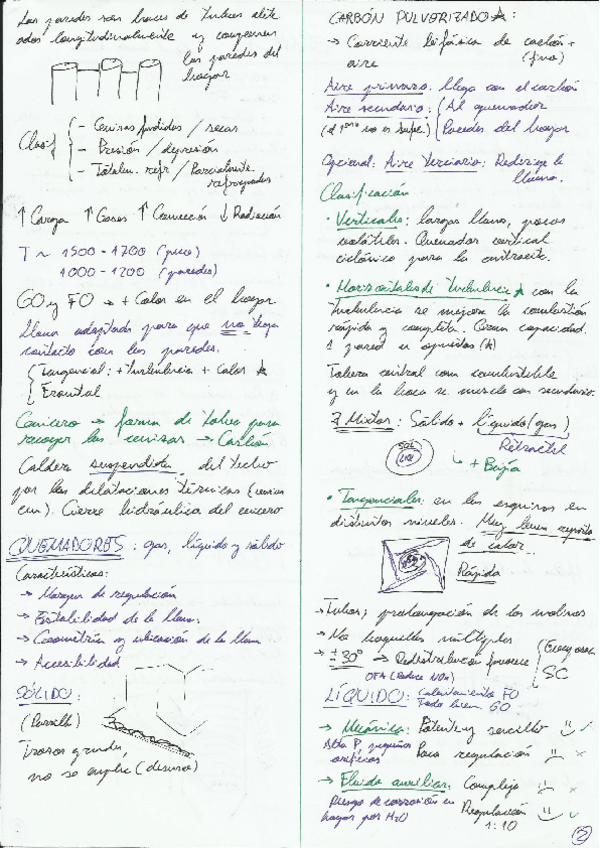 Las paredes son haces de tubos alete
ados longitudinalmente y componen
las paredes del
hogar
Clasif
- Cenizas fundidas / secas
- Presión / depresión
- Totalm. refr / Parcialmente
refrigerados
↑ Carga ↑ Gases ↑ Convección ↓ Radiación
T ~ 1500 - 1700 (pico)
1000 - 1200 (paredes)
GO y FO → + Calor en el hogar
Llama adaptada para que no tenga
contacto con las paredes.
Tangencial: + Turbulencia + Calor ☆
Frontal
Cenicero → forma de tolva para
recoger las cenizas → Carbón
Caldera suspendida del techo
por las dilataciones térmicas (varios
cm). Cierre hidráulico del cenicero
QUEMADORES: gas, líquido y sólido
Características:
→ Margen de regulación
→ Estabilidad de la llama.
→ Geometría y ubicación de la llama
→ Accesibilidad
SÓLIDO:
(Parrilla)
Trozos grandes,
no se emplea (desuso)
CARBÓN PULVERIZADO ☆:
→ Corriente bifásica de carbón +
aire (fino)
Aire primario: llega con el carbón
Aire secundario: Al quemador
(el 1ario no es sufic.) Paredes del hogar
Opcional: Aire terciario: Redirige la
llama.
Clasificación
• Verticales: largas llamas, pocos
volátiles. Quemador vertical
ciclónico para la antracita.
• Horizontales de Turbulencia ☆ con la
turbulencia se mejora la combustión
rápida y completa. Gran capacidad.
1 pared u opuestas (☆)
Tobera central con combustible
y en la boca se mezcla con secundario.
Mixtos: Sólido + líquido (gas)
Retráctil
SOL
LIQ
↳ + Bujía
• Tangenciales: en las esquinas en
distintos niveles. Muy buen reparto
de calor.
Rápida
→ Tubos; prolongación de los molinos
→ No boquillas múltiples
→ ± 30° → Redistribución favorece
OFA (Reduce NOx)
SC
LÍQUIDO: Calentamiento FO
Todo bien GO
→ Mecánica: Potente y sencillo ✓
Alta P, pequeños
orificios
Poca regulación ×
→ Fluido auxiliar: Complejo ×
Riesgo de corrosión en
hogar por H2O
Regulación ✓
1:10
2